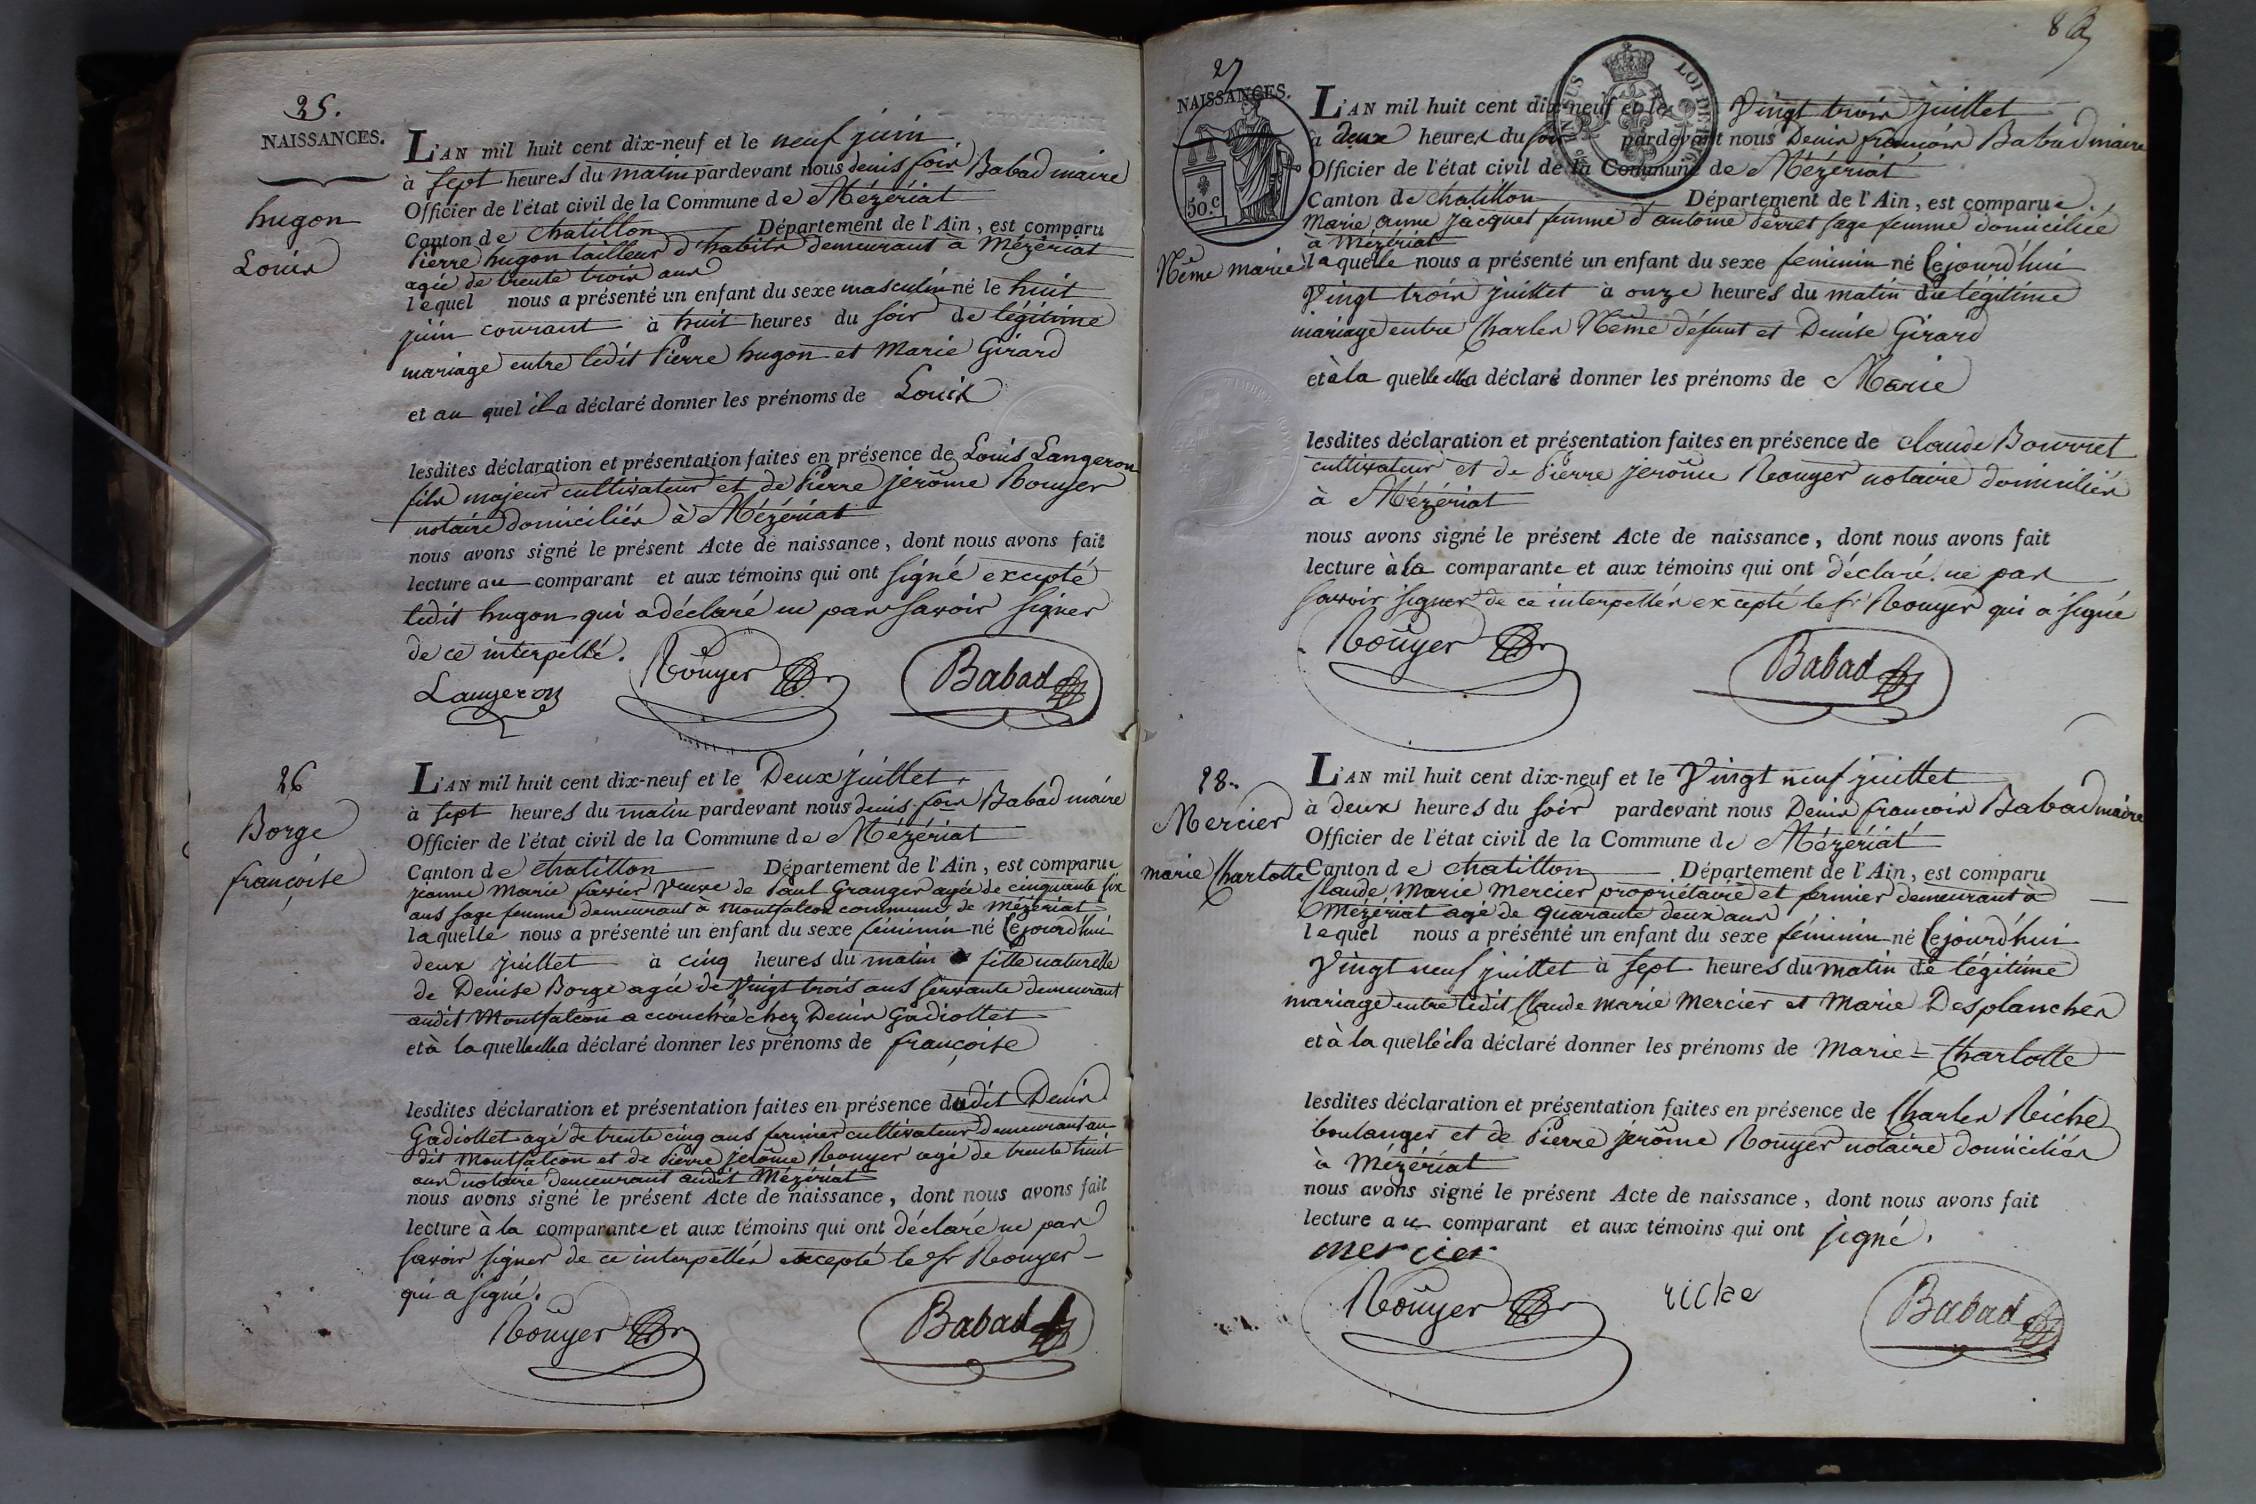 25.
NAISSANCES.
hugon
Louis
L'AN mil huit cent dix-neuf et le neuf juin
à sept heures du matin pardevant nous denis fois Babad maire
Officier de l'état civil de la Commune de Mézériat
Canton de chatillon Département de l'Ain, est comparu
Pierre hugon tailleur d'habits demeurant à Mézériat
agée de trente trois ans
lequel nous a présenté un enfant du sexe masculin né le huit
juin courant à huit heures du soir de légitime
mariage entre ledit Pierre hugon et Marie Girard
et au quel il a déclaré donner les prénoms de Louis
lesdites déclaration et présentation faites en présence de Louis Langeron
fils majeur cultivateur et de Pierre jerôme Rouyer
notaire domiciliés à Mézériat
nous avons signé le présent Acte de naissance, dont nous avons fait
lecture au comparant et aux témoins qui ont signé excepté
ledit hugon qui a déclaré ne pas savoir signer
de ce interpellé.
Langeron Rouyer Babad
26
Borge
françoise
L'AN mil huit cent dix-neuf et le Deux juillet
à sept heures du matin pardevant nous denis fois Babad maire
Officier de l'état civil de la Commune de Mézériat
Canton de chatillon Département de l'Ain, est comparue
jeanne Marie favier veuve de Paul Granger agée de cinquante six
ans sage femme demeurant à Montfalcon commune de Mézériat
laquelle nous a présenté un enfant du sexe féminin né Cejourd'hui
deux juillet à cinq heures du matin fille naturelle
de Denise Borge agée de vingt trois ans servante demeurant
audit Montfalcon accouchée chez Denis Gadiollet
et à la quelle elle a déclaré donner les prénoms de françoise
lesdites déclaration et présentation faites en présence dudit Denis
Gadiollet agé de trente cinq ans fermier cultivateur demeurant au
dit Montfalcon et de Pierre Jerôme Rouyer agé de trente huit
ans notaire demeurant audit Mézériat
nous avons signé le présent Acte de naissance, dont nous avons fait
lecture à la comparante et aux témoins qui ont déclaré ne pas
savoir signer de ce interpellés excepté le sr Rouyer
qui a signé.
Rouyer Babad
83
27
NAISSANCES.
50. c
LOI DE
Nême marie
L'AN mil huit cent dix-neuf et le Vingt trois juillet
à deux heures du soir pardevant nous Denis françois Babad maire
Officier de l'état civil de la Commune de Mézériat
Canton de chatillon Département de l'Ain, est comparue
Marie anne Jacquet femme d'antoine Perret sage femme domiciliée
à Mézériat
laquelle nous a présenté un enfant du sexe féminin né Cejourd'hui
Vingt trois juillet à onze heures du matin du légitime
mariage entre Charles Nême défunt et Denise Girard
et à la quelle elle a déclaré donner les prénoms de Marie
lesdites déclaration et présentation faites en présence de claude Bourret
cultivateur et de Pierre jerôme Rouyer notaire domiciliés
à Mézériat
nous avons signé le présent Acte de naissance, dont nous avons fait
lecture à la comparante et aux témoins qui ont déclaré ne pas
savoir signer de ce interpellés excepté le sr Rouyer qui a signé
Rouyer Babad
28.
Mercier
marie Charlotte
L'AN mil huit cent dix-neuf et le Vingt neuf juillet
à deux heures du soir pardevant nous Denis françois Babad maire
Officier de l'état civil de la Commune de Mézériat
Canton de chatillon Département de l'Ain, est comparu
Claude Marie Mercier propriétaire et fermier demeurant à
Mézériat agé de quarante deux ans
lequel nous a présenté un enfant du sexe féminin né Cejourd'hui
Vingt neuf juillet à sept heures du matin de légitime
mariage entre ledit Claude marie Mercier et Marie Desplanches
et à la quelle il a déclaré donner les prénoms de Marie = Charlotte
lesdites déclaration et présentation faites en présence de Charles Riche
boulanger et de Pierre jerôme Rouyer notaire domiciliés
à Mézériat
nous avons signé le présent Acte de naissance, dont nous avons fait
lecture au comparant et aux témoins qui ont signé.
mercier
Rouyer riche Babad